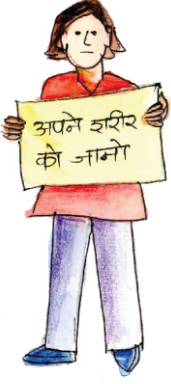 अपने शरीर
को जानो